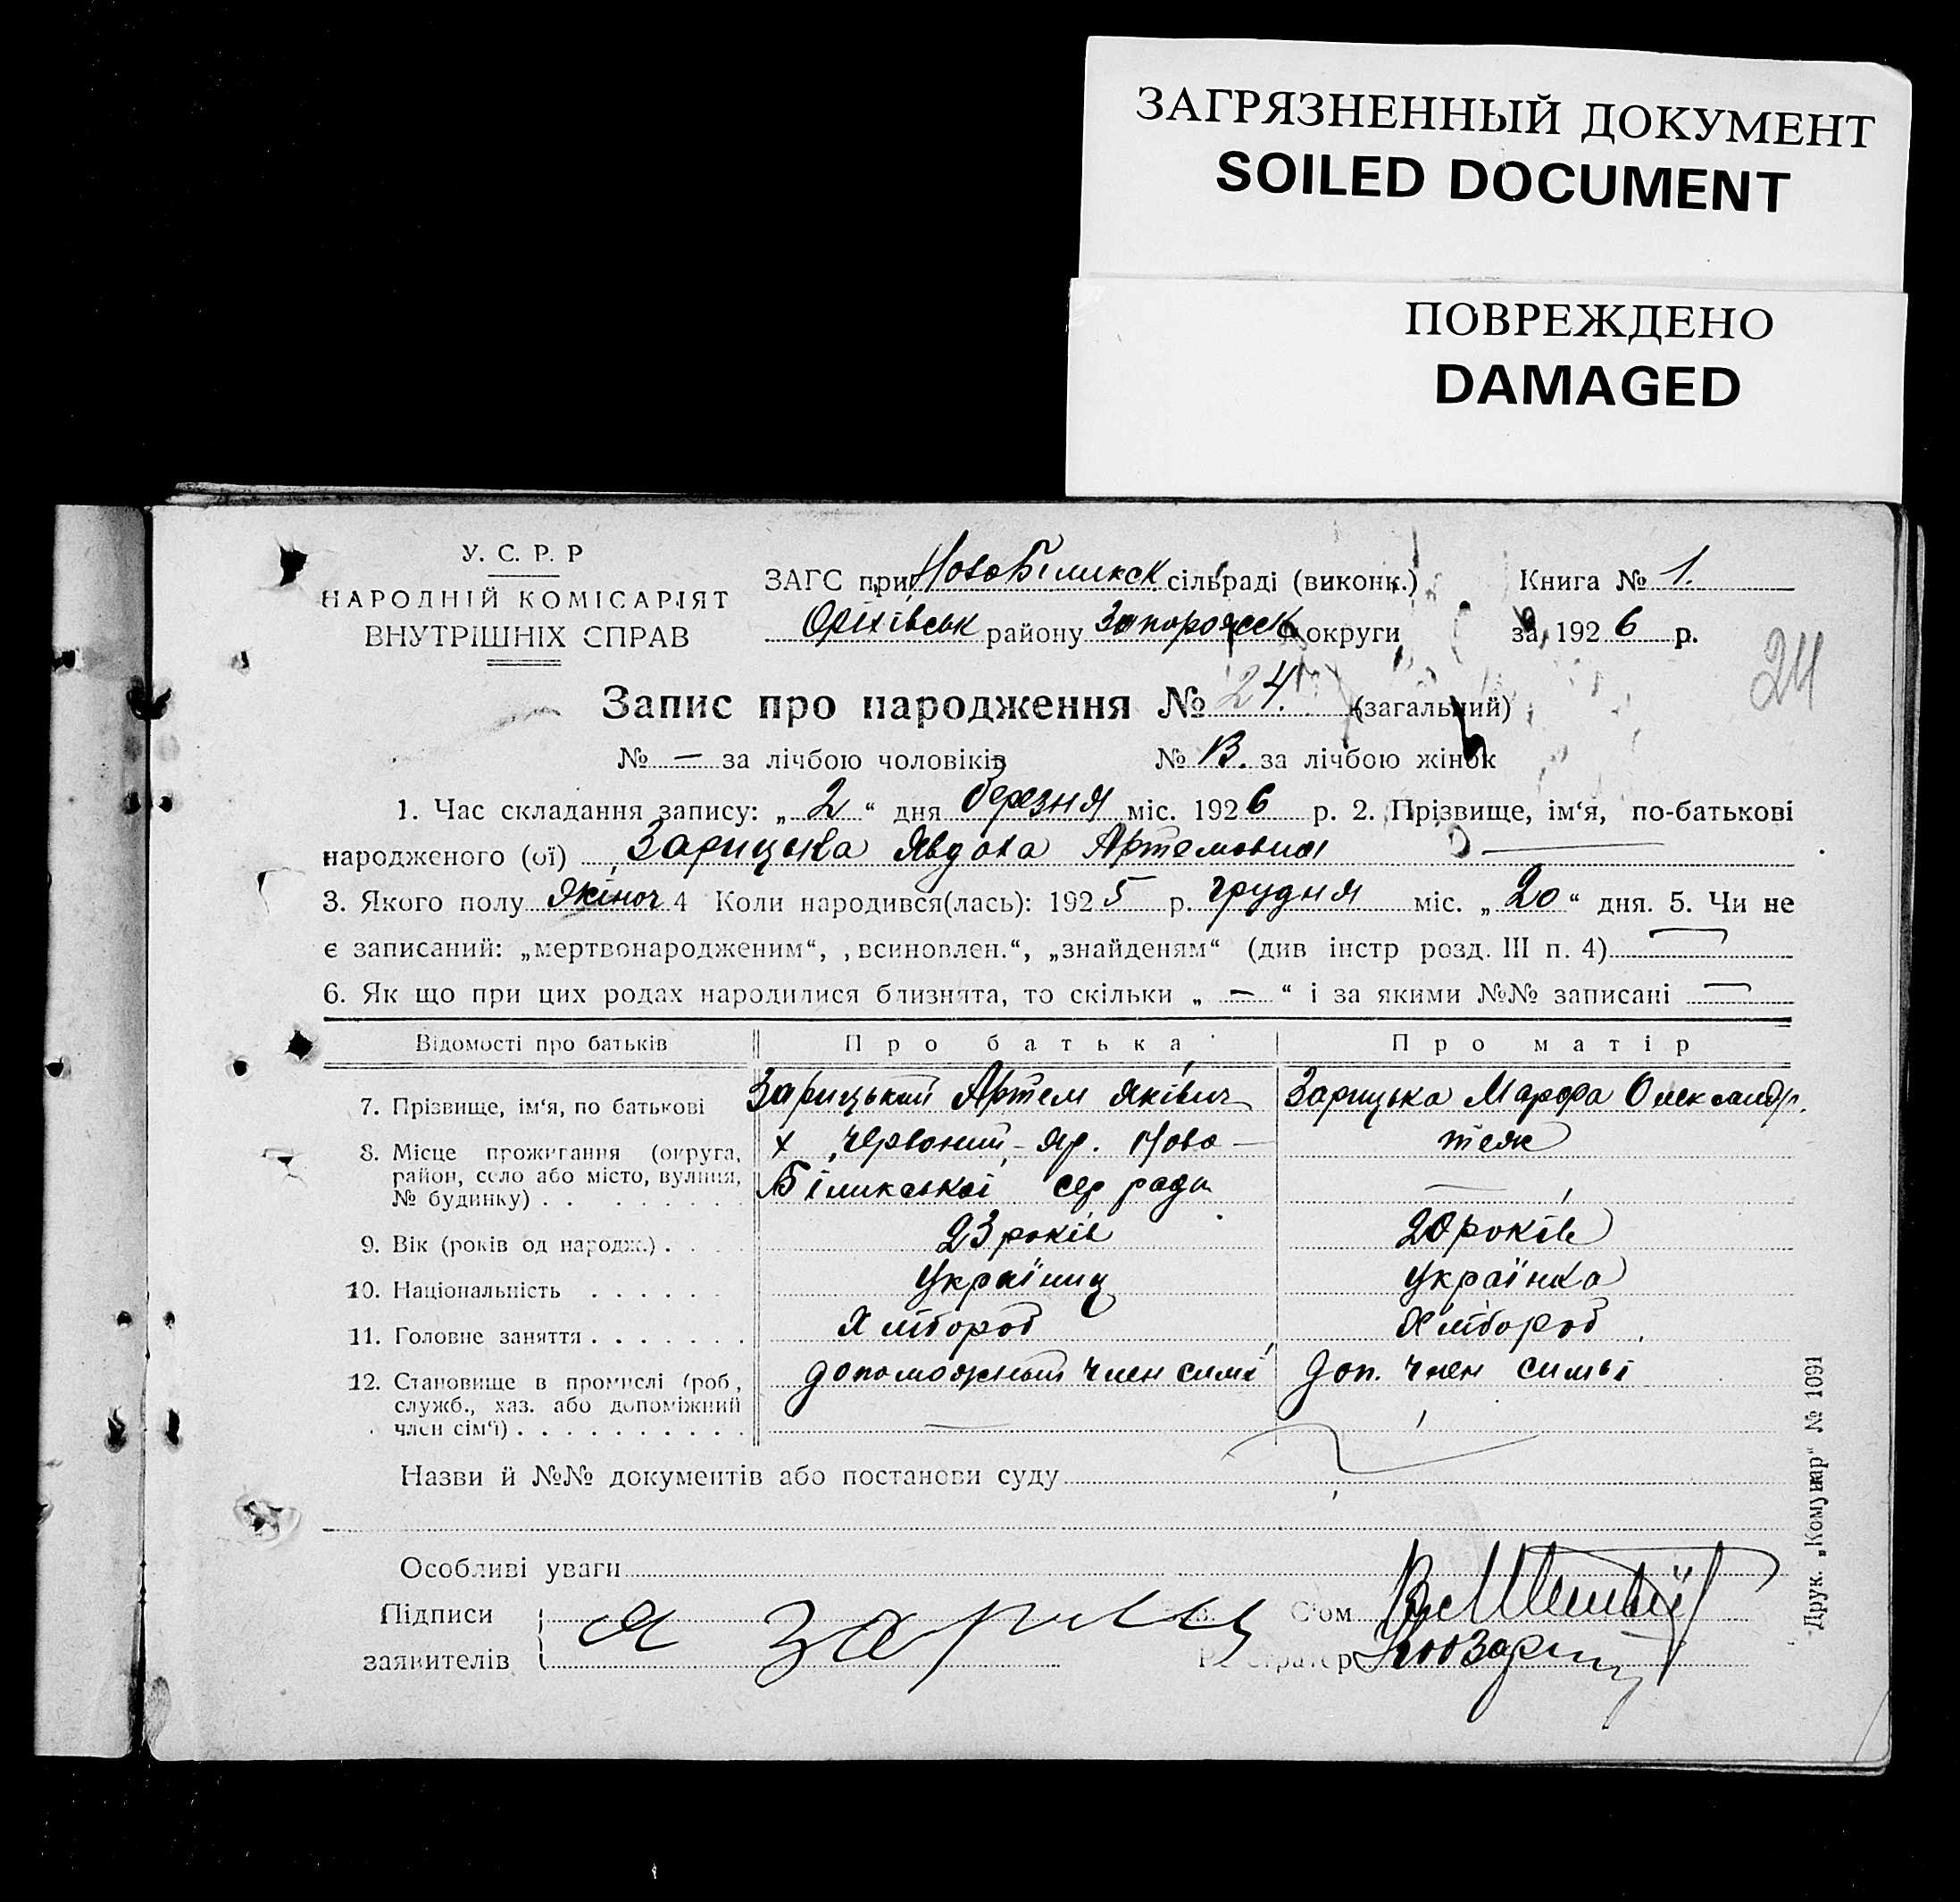 ЗАГРЯЗНЕННЫЙ ДОКУМЕНТ
SOILED DOCUMENT
ПОВРЕЖДЕНО
DAMAGED
У. С. Р. Р
НАРОДНІЙ КОМІСАРІЯТ
ВНУТРІШНІХ СПРАВ
ЗАГС при НовоБіликск сільраді (виконк.)
Оріхівськ району Запорожськ округи
Книга № 1.
за 1926 р.
24
Запис про народження № 24. (загальний)
№ — за лічбою чоловіків № 13. за лічбою жінок
1. Час складання запису: „2“ дня березня міс. 1926 р. 2. Прізвище, ім‘я, по-батькові
народженого (ої) Зарицька Явдоха Артемовна —
3. Якого полу жіноч 4 Коли народився(лась): 1925 р. грудня міс. „20“ дня. 5. Чи не
є записаний: „мертвонародженим“, „всиновлен.“, „знайденям“ (див інстр розд. III п. 4) —
6. Як що при цих родах народилися близнята, то скільки „ — “ і за якими №№ записані —
Відомости про батьків Про батька Про матір
7. Прізвище, ім‘я, по батькові Зарицький Артем Яківич Зарицька Марфа Олександр.
8. Місце проживання (округа, район, село або місто, вулиця, № будинку) . . х. Червоний-Яр. Ново- теж
Біликської сер ради —
9. Вік (років од народж.) . 23 років 20 років
10. Національність . . . . . . Українец Українка
11. Головне заняття . . . . . . . Хлібороб Хлібороб
12. Становище в промислі (роб., служб., хаз. або допоміжний член сім‘ї) . . . . . . . . . . допоможный член симі доп. член симьі
Назви й №№ документів або постанови суду
Особливі уваги
Підписи заявителів А Зариц
С‘ом
Реєстратор
Друк. „Комунар“ № 1091